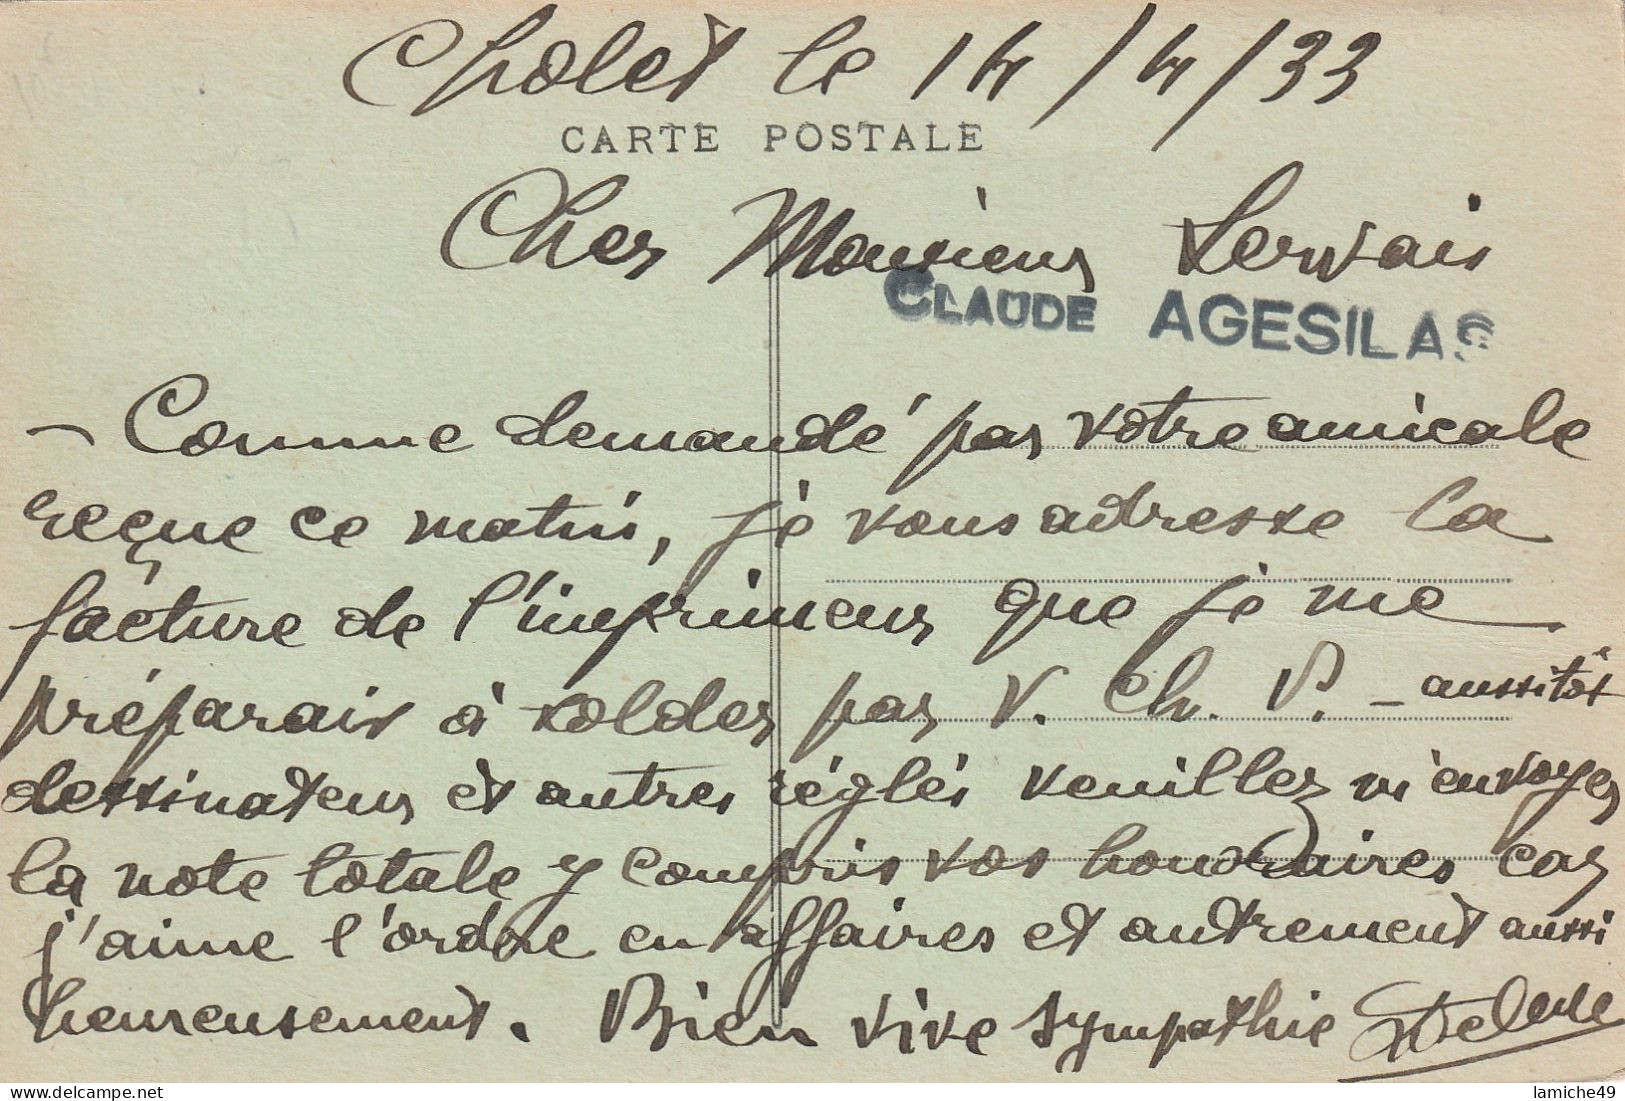 Cholet le 14/4/33
CARTE POSTALE
Cher Monsieur Servais
CLAUDE AGESILAS
- Comme demandé par votre amicale
reçue ce matin, je vous adresse la
facture de l'imprimeur que je me
préparais à solder par V. Ch. P. - aussitôt
dessinateur et autres réglés veuillez m'envoyer
la note totale y compris vos honoraires car
j'aime l'ordre en affaires et autrement aussi
heureusement. Bien vive sympathie
delamiche.net
lamiche49